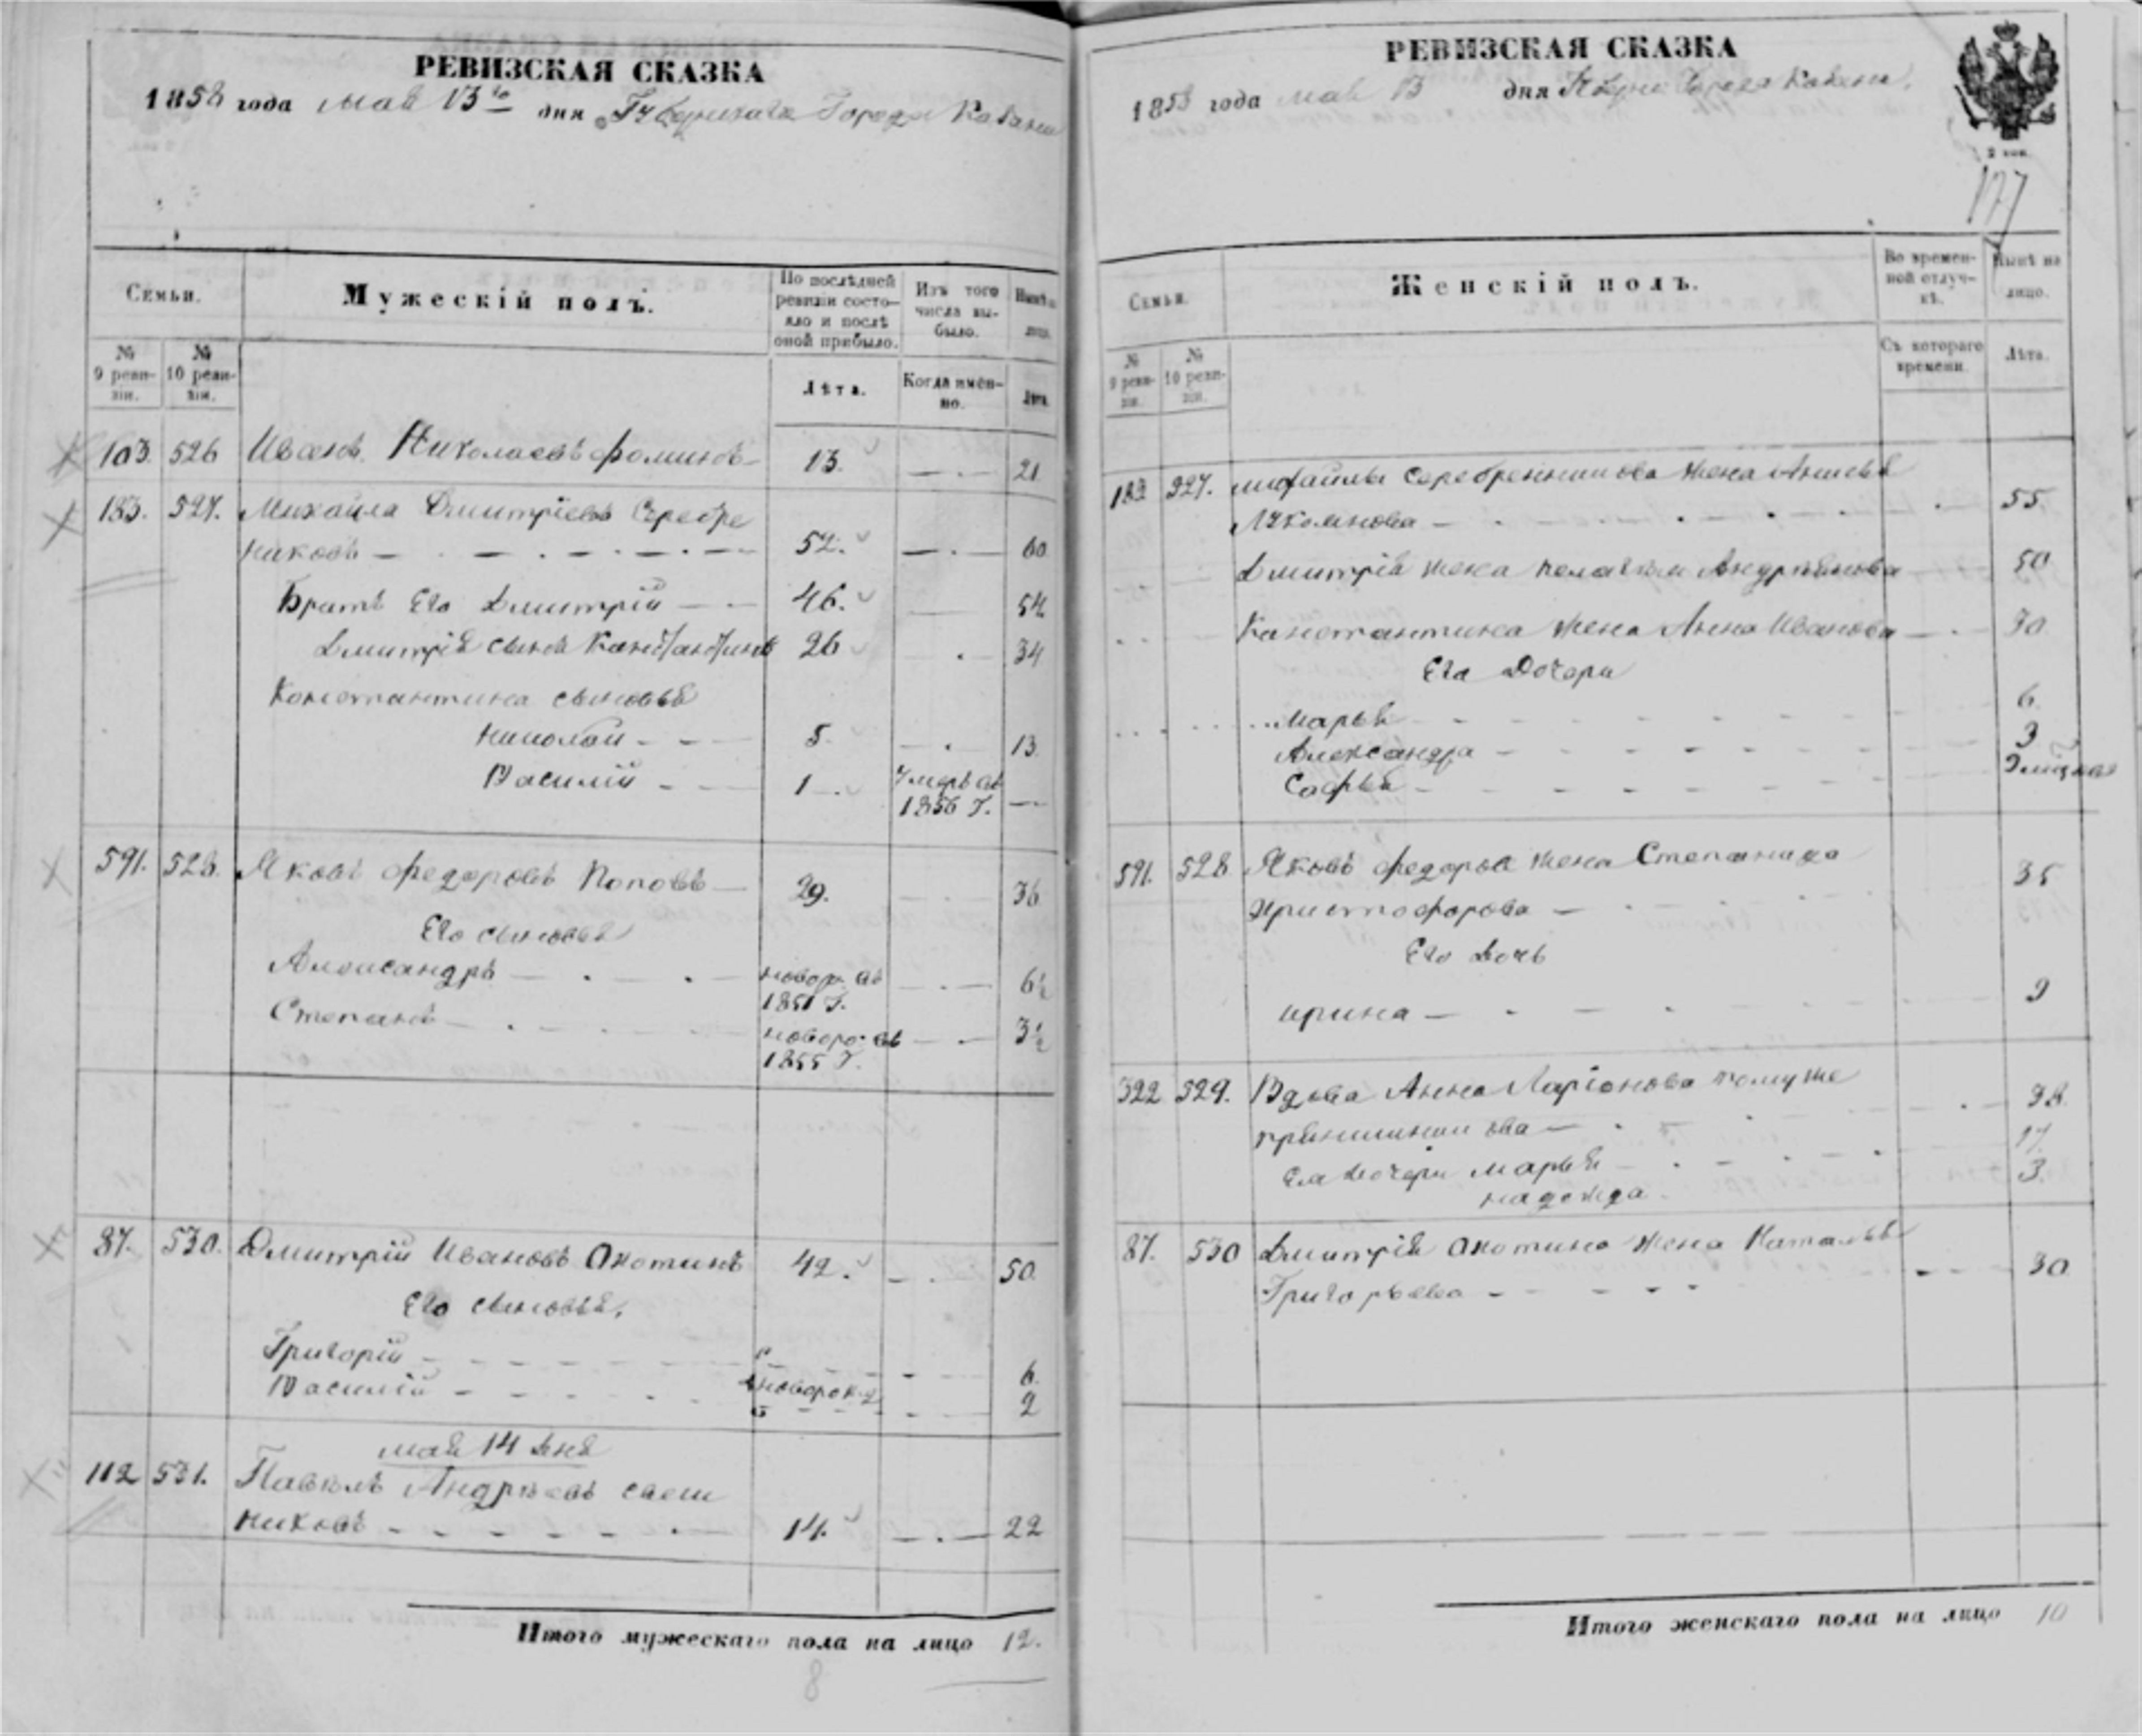 РЕВИЗСКАЯ СКАЗКА
1858 года мая 13го дня Губернскаго Города Казани
Семьи.
Мужескій полъ.
По послѣдней ревизіи состояло и послѣ оной прибыло.
Изъ того числа выбыло.
Нынѣ на лицо.
№ 9 ревизіи.
№ 10 ревизіи.
Лѣта.
Когда именно.
Лѣта.
103. 526 Иванъ Николаевъ Фоминъ 13. 21
183. 527. Михайла Дмитріевъ Сребре
никовъ 52. 60
Братъ Его Дмитрій 46. 54
Дмитрія сынъ Константинъ 26 34
Константина сыновья
Николай 5. 13
Василій 1 Умеръ въ
1856 Г.
591. 528. Яковъ Федоровъ Поповъ 29. 36
Его сыновья
Александръ новор. въ 6½
1851 Г.
Степанъ новоро. въ 3½
1855 Г.
87. 530. Дмитрій Ивановъ Охотинъ 42. 50
Его сыновья,
Григорій 6.
Василій новорож. 2
мая 14 дня
112 531. Павелъ Андреевъ свеш
никовъ 14. 22
Итого мужескаго пола на лицо 12.
8
РЕВИЗСКАЯ СКАЗКА
1858 года мая 13 дня Города Казани
2 коп.
177
Семьи.
Женскій полъ.
Во временной отлучкѣ.
Нынѣ на лицо.
№ 9 ревизіи.
№ 10 ревизіи.
Съ котораго времени.
Лѣта.
183 527. михайлы Серебренникова жена
55
Дмитрія жена Пелагея Андреянова 50
Константина жена Анна Иванова 30
Его Дочери
Марья 6
Александра 3
Софья
591. 528 Яковъ Федорова жена Степанида
Христофорова 35
Его Дочь
ирина 9
322 529. Вдова Анна Ларіонова помуже
38
Ея дочери Марья 17
надежда 3
87. 530 Дмитрія Охотина жена Наталья
Григорьева 30
Итого женскаго пола на лицо 10